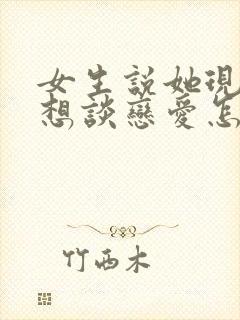 女生説她現
想談戀愛怎
竹西木